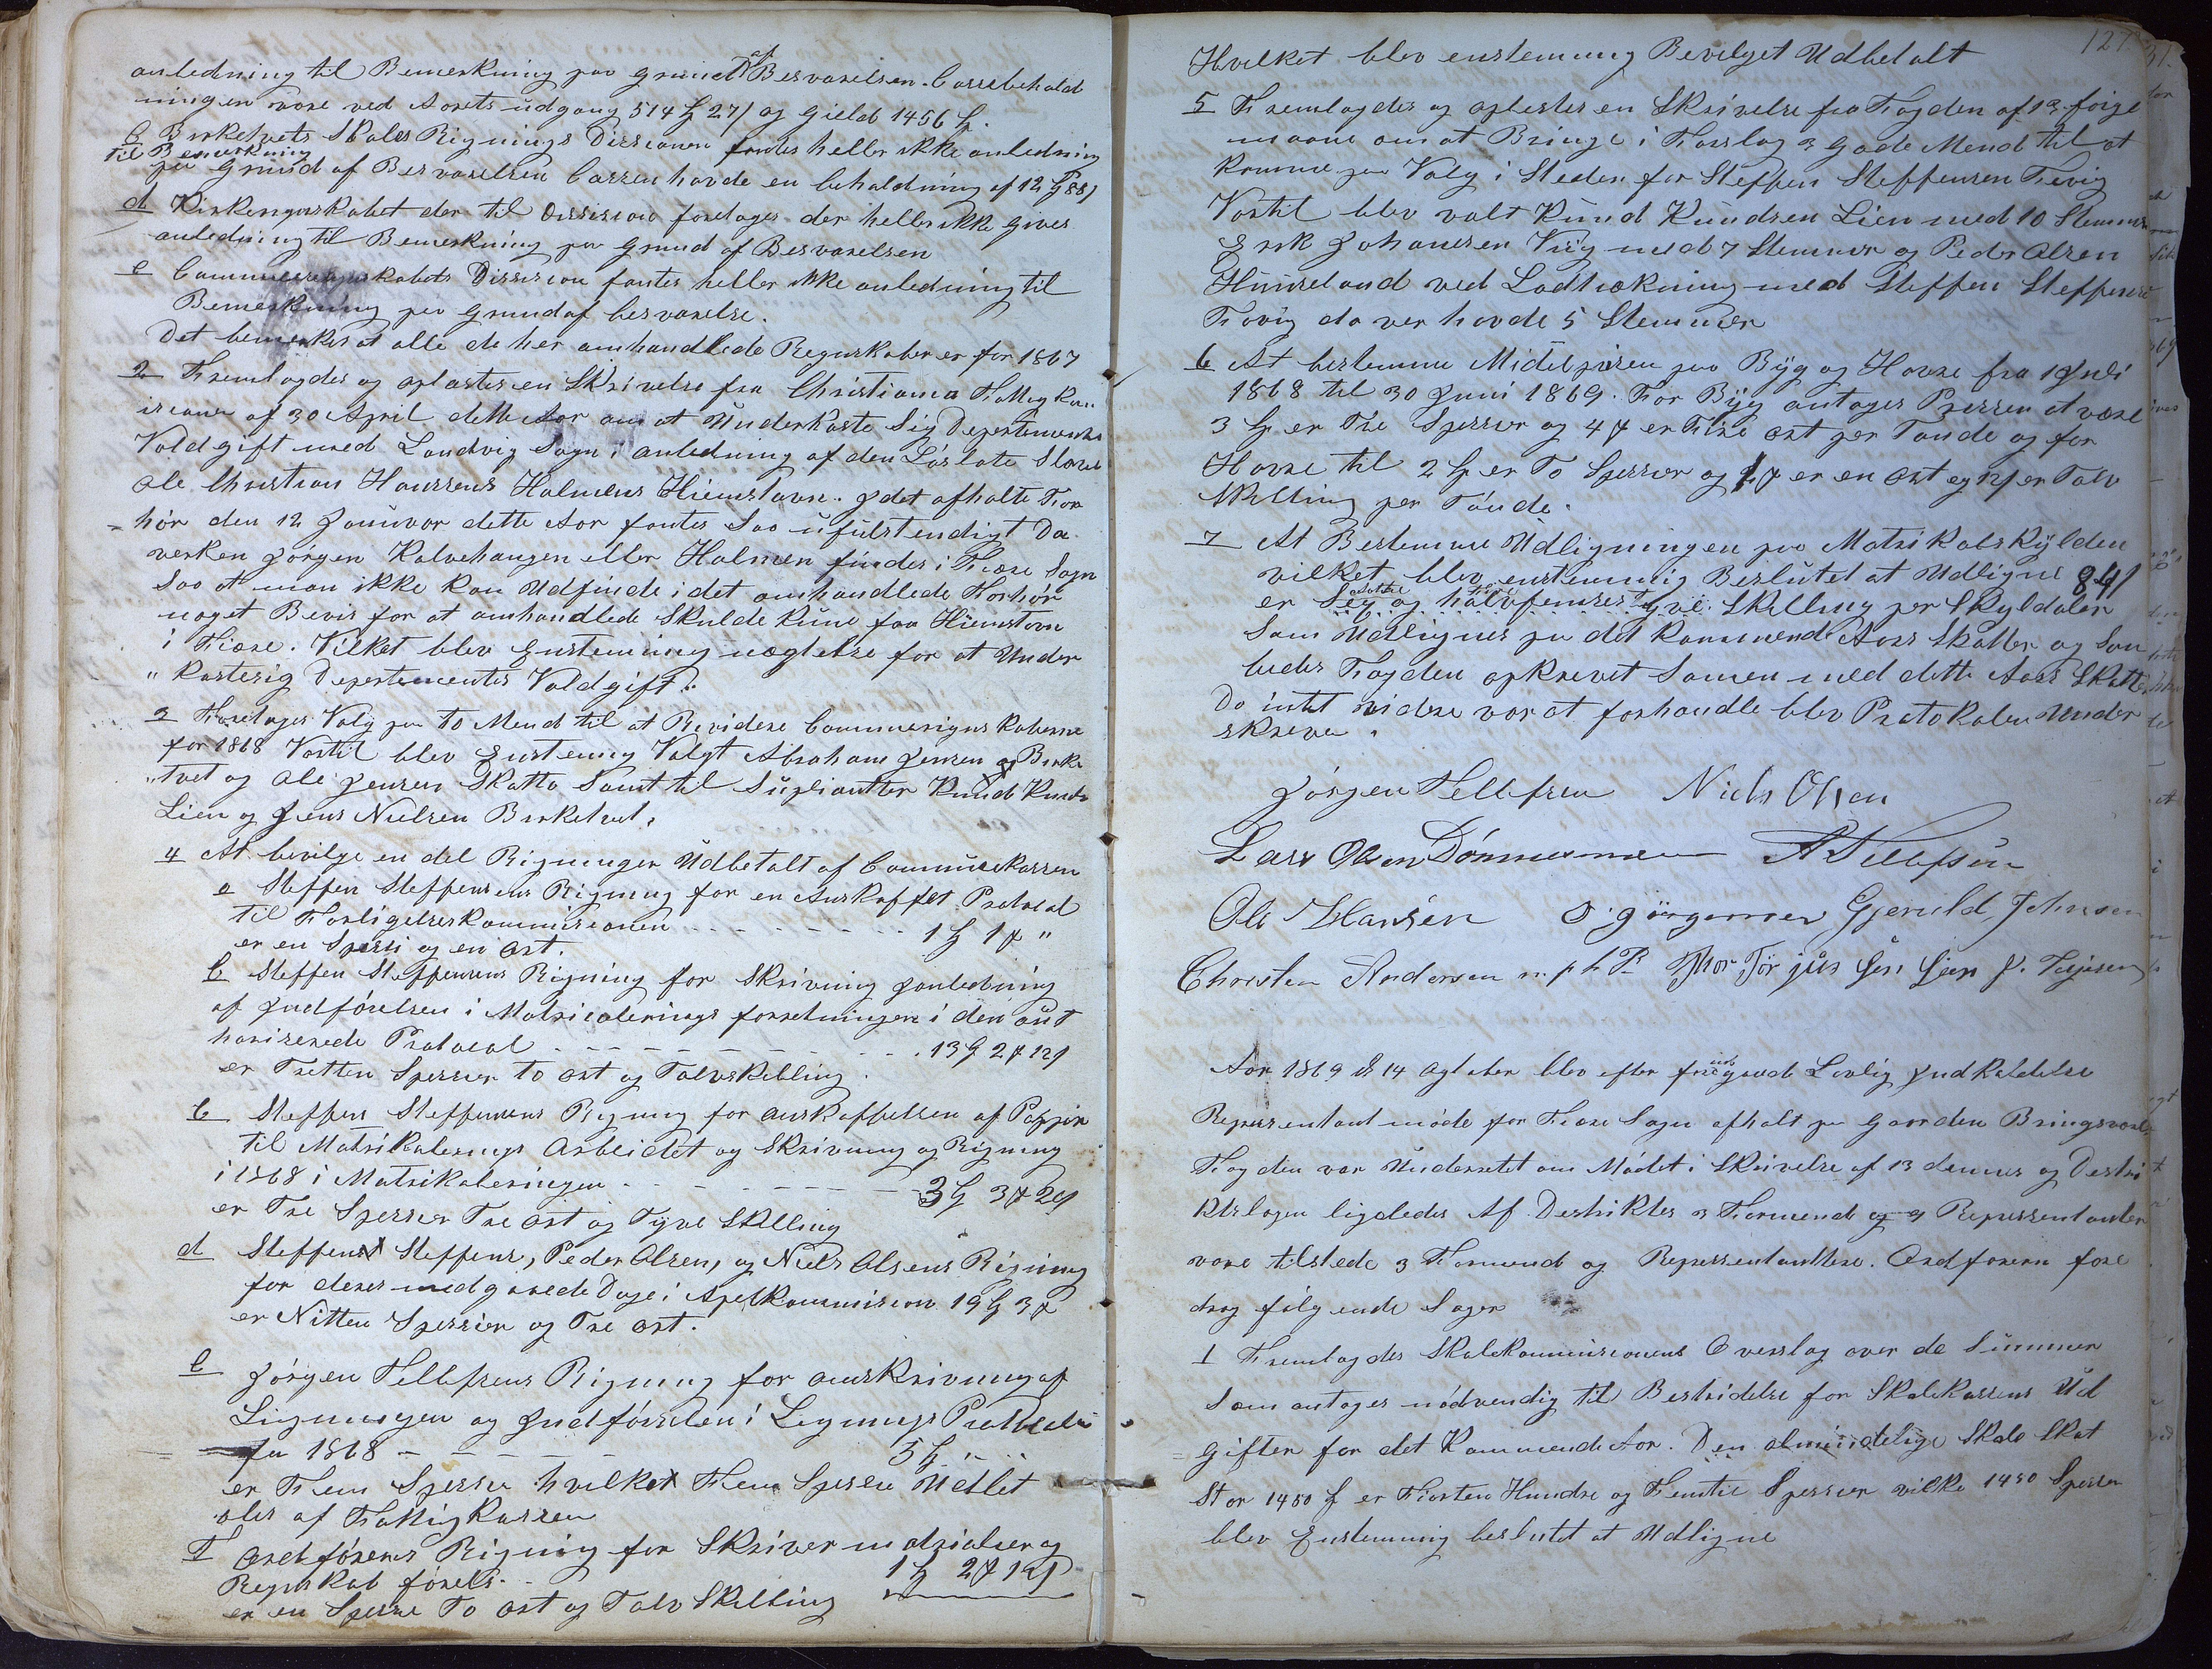 anledning til Bemerkning paa Grund af Besvarelsen. Cassebehold
ningen vare ved Aarets udgang 514 ₰ 27 ʃ og Gield 1456 ₰.
c Birketvets Skoles Rignings Dicisionen fantes heller ikke anledning
til Bemerkning
paa Grund af Besvarelsen Cassen havde en behaldning af 12 ₰ 88 ʃ
d Kirkeregnskabet der til Dissision foretages der heller ikke gives
anledning til Bemerkning paa Grund af Besvarelsen
e Communeregnskabets Dissision fantes heller ikke anledning til
Bemerkning paa Grund af besvarelse.
Det bemerkes at alle de her omhandlede Regnskaber er for 1867
2 Fremlagdes og oplæstes en Skrivelse fra Christiania Fattigkom
isionen af 30 April dette Aar om at Underkaste Sig Departementes
Voldgift med Landvig Sogn i anledning af den Løslate Slave
Ole Christian Hanssens Holmens Hiemstavn. I det afholte For
hør den 12 Januvar dette Aar fantes Saa ufulstendigt Da
verken Jørgen Kalvehaugen eller Holmen findes i Fiære Sogn
Saa at man ikke kan Udfinde i det omhandlede Forhør
noget Bevis for at omhandlede Skulde kune faa Hiemstavn
i Fiære. Vilket blev Enstemming nægtelse for at Under
kastesig Departementes Voldgift.
3 Foretages Valg paa to Mend til at Revidere Communerignskaberne
for 1868 Vortil blev Enstemig Valgt Abraham Jensen Birke
tvet og Ole Jensen Skatto Samt til Supliantter Knud Knuds
Lien og Jens Nielsen Birketvet.
4 At bevilge en del Rigninger Udbetalt af Communekassen
a Steffen Steffensens Rigning for en Anskaffet Protocol
til Forligelseskommissionen - - - - - - - 1 ₰ 1 ₰ "
er en Spesi og en Ort.
b Steffen Steffensens Rigning for Skrivning Janledning
af Jndførelsen i Matriculerings forretningen i den aut
horiserede Protocol - - - - - - - 13 ₰ 2 ₰ 12 ʃ
er Tretten Spesier to Ort og Tolvskilling.
c Steffen Steffensens Rigning for anskaffelsen af Pappir
til Matrikulerings Arbeidet og Skrivning og Rigning
i 1868 i Matrikuleringen - - - - - - - 3 ₰ 3 ₰ 20 ʃ
er Tre Spesier Tre Ort og Tyve Skilling
d Steffen Steffens, Peder Olsen, og Niels Olsens Rigning
for deres medgaaede Dage i Apelkommision 19 ₰ 3 ₰
er Nitten Spesier og Tre Ort.
e Jørgen Tellefsens Rigning for anskrivning af
Ligningen og Jndførselen i Lignings Protocolen
for 1868 - - - - - 5 ₰ - -
er Fem Spesier hvilket Fem Spesier Udbet
ales af Fattigkassen
f Ordførerens Rigning for Skrivermatrialier og
Regnskab førels. - 1 ₰ 2 ₰ 12 ʃ
er en Spesie To Ort og Tolv Skilling
127
Hvilket blev enstemmig Bevilget Udbetalt
5 Fremlagdes og oplestes en Skrivelse fra Fogden af 12 forige
maane om at Bringe i Forslag 3 Gode Mend til at
komme paa Valg i Steden for Steffen Steffensen Fevig
Vortil blev valt Knud Knudsen Lien med 10 Stemmer
Erik Johansen Viig med 7 Stemmer og Peder Olsen
Hunseland ved Lodtrækning med Steffen Steffensen
Fævig da ver havde 5 Stemmer
6 At bestemme Midelprisen paa Byg og Havre fra 1 Juli
1868 til 30 Juni 1869. For Byg antages Pressen at være
3 ₰ er Tre Spesier og 4 ₰ er Fire Ort per Tønde og for
Havre til 2 ₰ er To Spesier og 1 ₰ er en Ort og 12 ʃ er Tolv
Skilling per Tønde.
7 At Bestemme Udligningen paa Matrikelskylden
vilket blev enstemmig Beslutet at Udligne 84 ʃ
er Seg og halvfemses Tyve Skilling per Skyldaler
Som Udlignes paa det kommende Aars Skatter og Saa
ledes Fogden opkrevet Samen med dette Aars Skatter
Da intet videre var at forhandle blev Protokolen Under
skreven.
Jørgen Tellefsen Niels Olsen
Lars Olsen Dømmesmoen A Tellefsen
Ole Hansen O. Jørgensen Gjeruld Johnsen
Chorsten Andersen m. p h P Thor Tørjus Sen Jen J. Terjesen
Aar 1869 d 14 Agtober blev efter fregaaende Lovlig Jndkaldelse
Representantmøde for Fiære Sogn afholt paa Gaarden Bringsvær
Fogden var Underretet om Mødet i Skrivelse af 13 dennes og Destri
ktslægen ligeledes Af Destriktes 3 Formend og 9 Representanter
vare tilstede 3 Formend og Representanttere. Ordføreren fore
drog følgende Sager
1 Fremlagdes Skolekommisionens Overslag over de Summer
Som antages nødvendig til Bestridelse for Skolekassens Ud
gifter for det Kommende Aar. Den almindelige Skole Skat
Stor 1450 ₰ er Fiorten Hundre og Femtie Spesier vilke 1450 Spesier
blev Enstemmig beslutet at Udligne